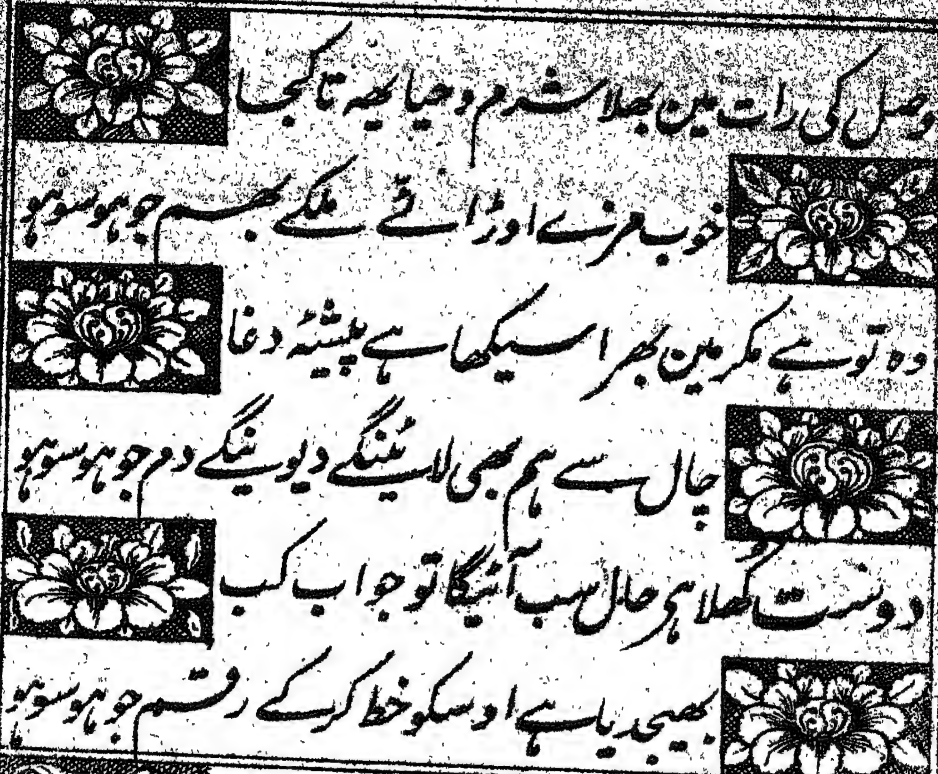 وصل کی رات مین بھلا شرم و حیا یہہ تا کجا
خوب مزے اوڑائے ملکے بہم جو ہو سو ہو
وہ تو ہے مکر مین بھرا سیکھا ہے پیشۂ دغا
چال سے ہم بھی لائینگے دیوینگے دم جو ہو سو ہو
دوست کُھلا ہر حال سب آئیگا تو جواب کب
بھیجدیا ہے اوسکو خط کرکے رقم جو ہو سو ہو